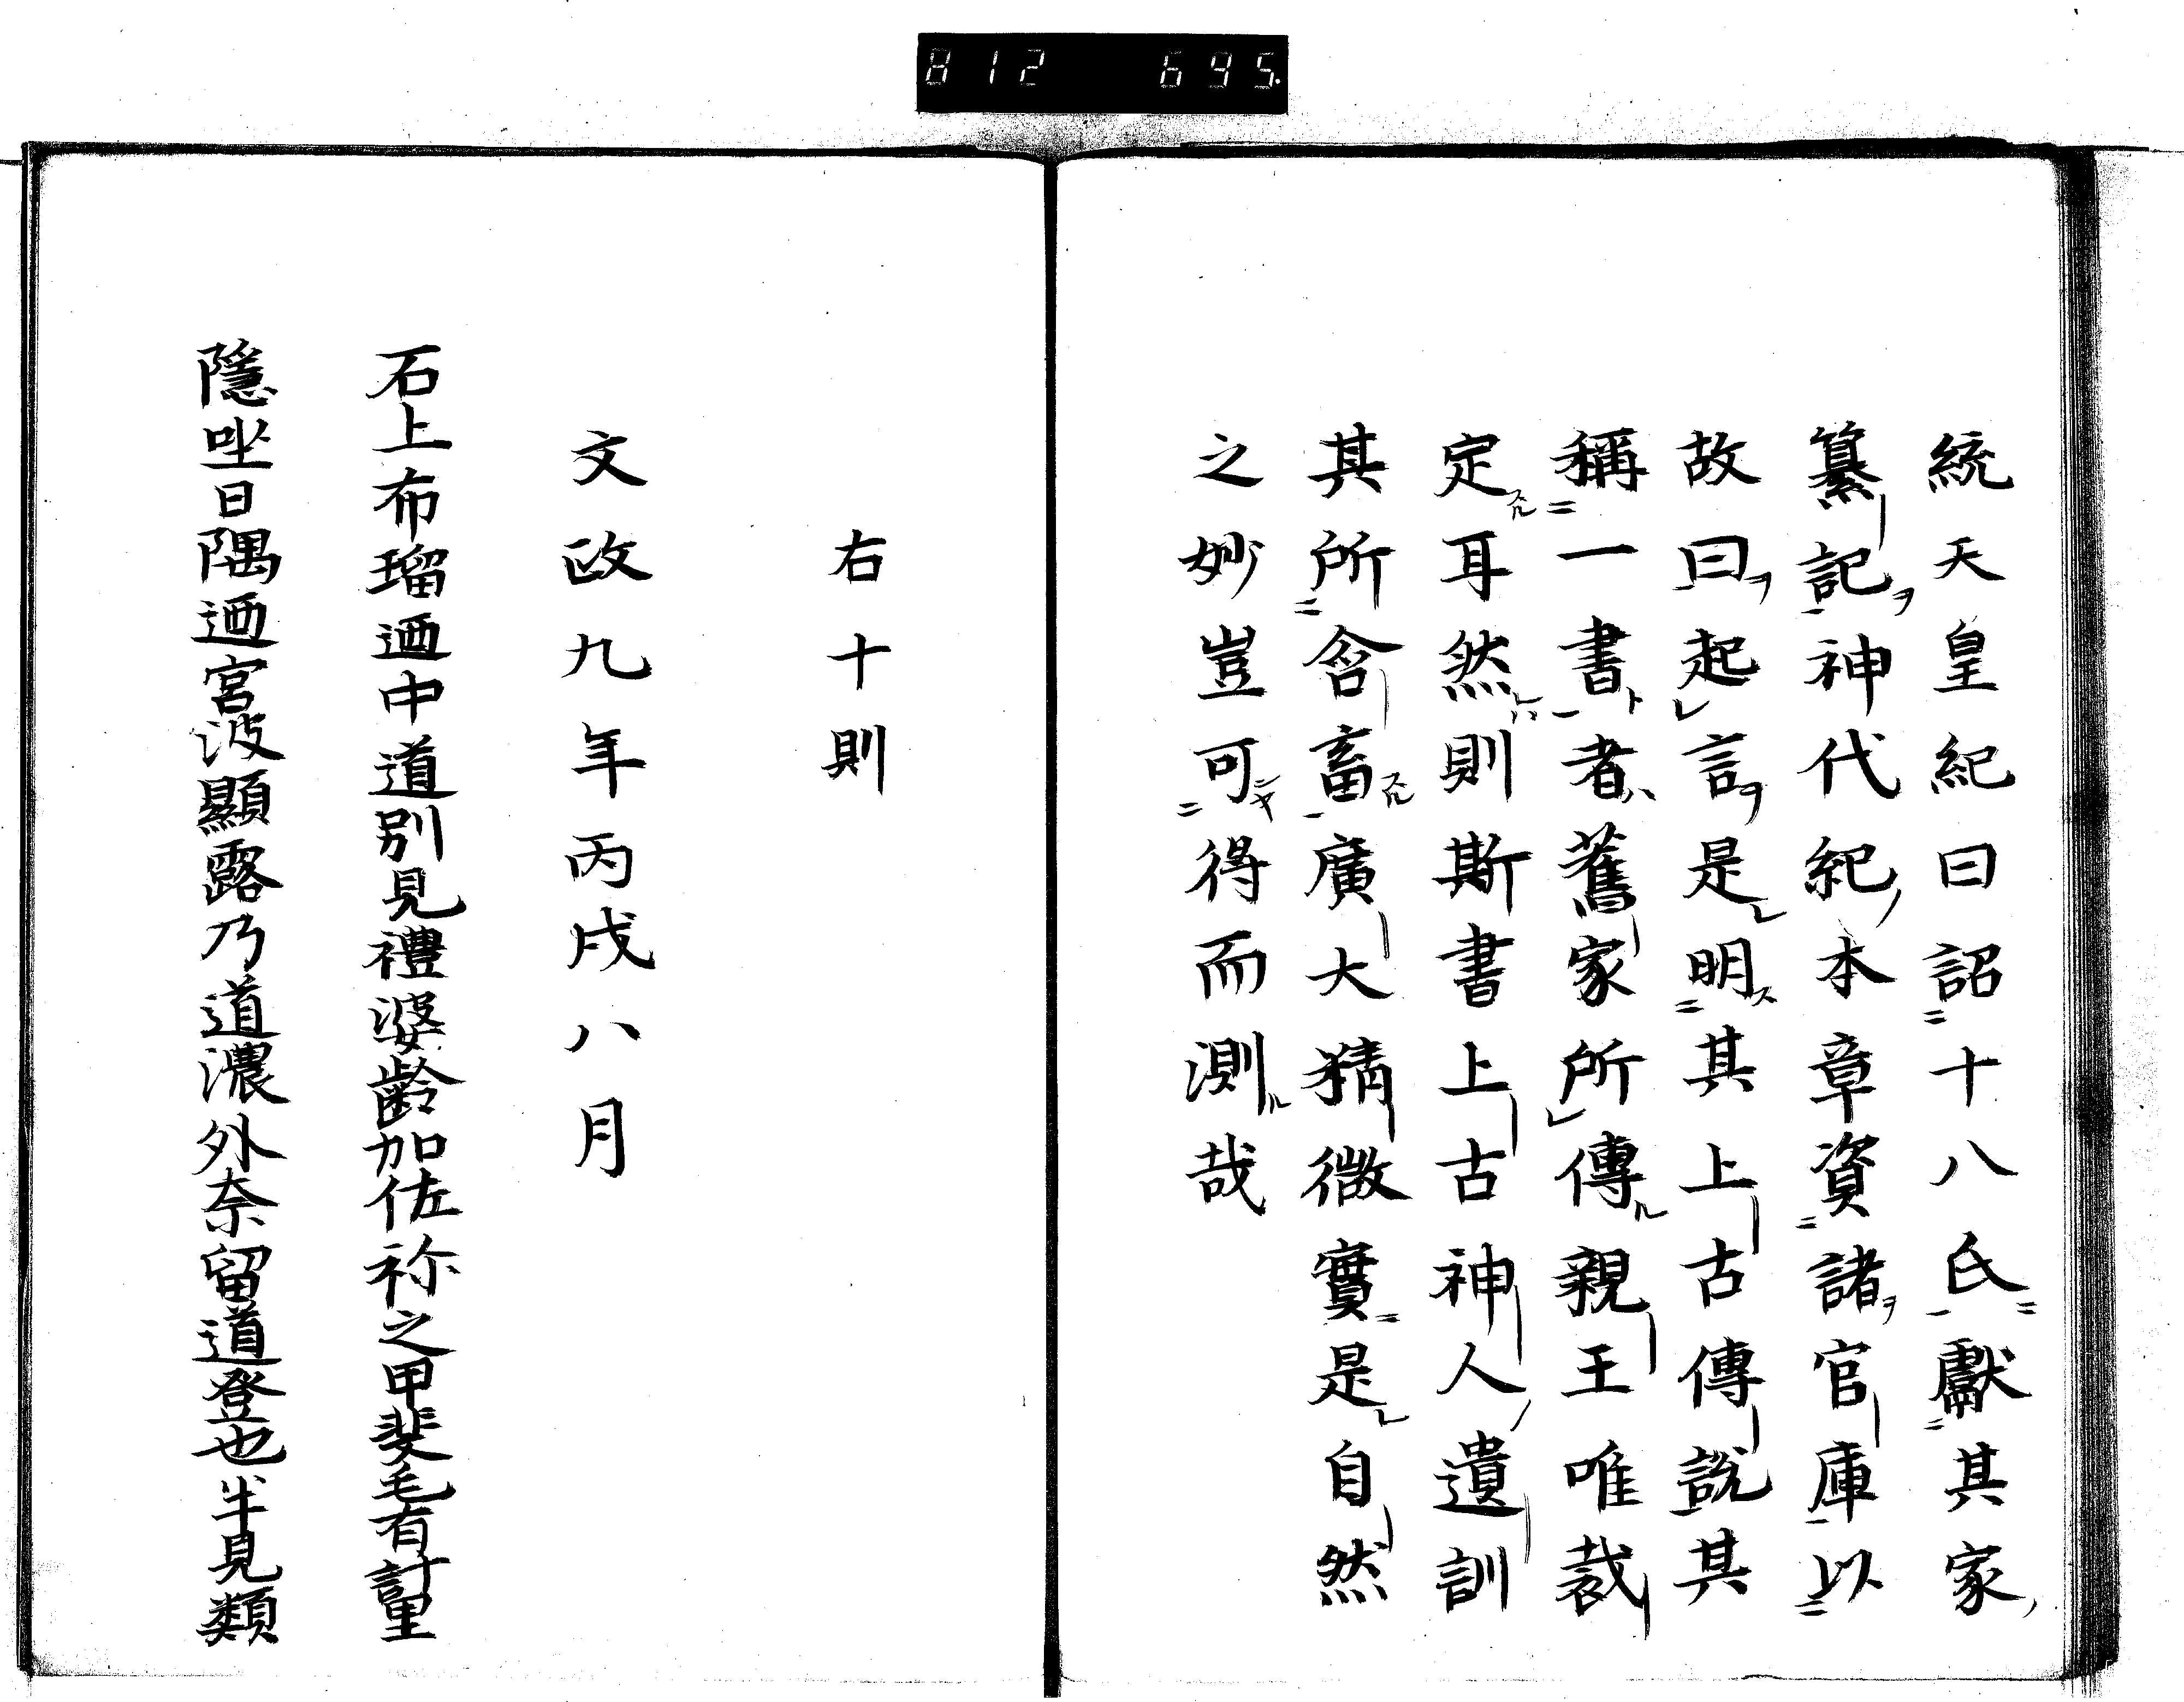 812 695.
統天皇紀曰詔十八氏獻其家
纂記神代紀本章資諸官庫以
故曰起言是明其上古傳說其
稱一書者舊家所傳親王唯裁
定耳然則斯書上古神人遺訓
其所含畜廣大精微實是自然
之妙豈可得而測哉
右十則
文政九年丙戌八月
石上布瑠迺中道別見禮婆齡加佐祢之甲斐毛有計里
隱坐日隅迺宮波顯露乃道濃外奈留道登也半見類